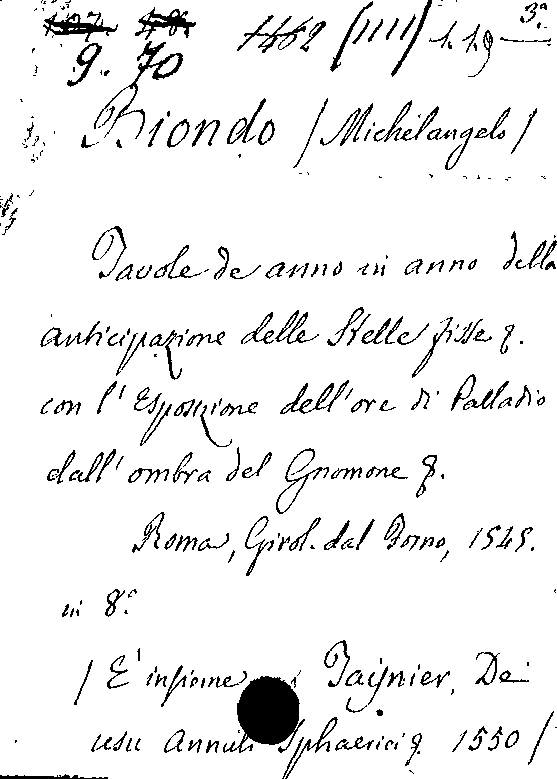 9. 70
1462 (IIII) 1.19 3.ª
Biondo (Michelangelo)
Tavole de anno in anno della
anticipazione delle Stelle fisse &.
con l'Esposizione dell'ore di Palladio
dall'ombra del Gnomone &.
Roma, Girol. dal Forno, 1545.
in 8.º
(E' insieme Taisnier, De
usu Annuli Sphaerici &. 1550)